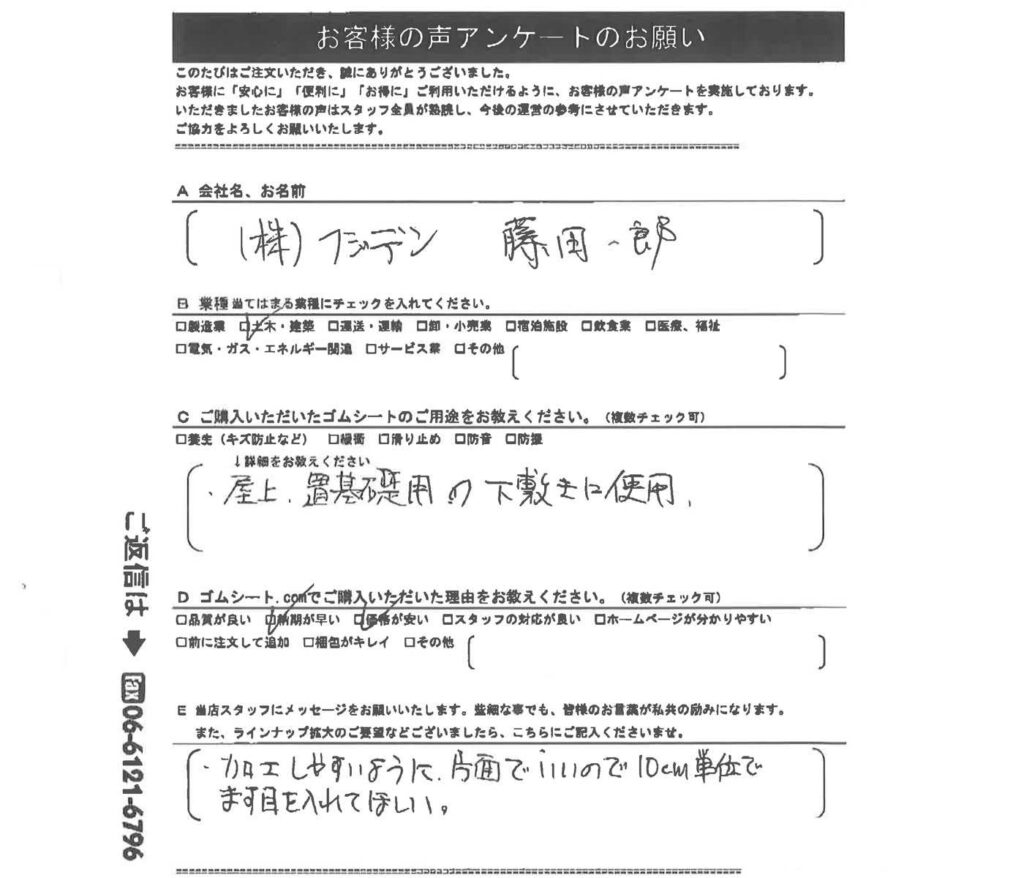 お客様の声アンケートのお願い
このたびはご注文いただき、誠にありがとうございました。
お客様に「安心に」「便利に」「お得に」ご利用いただけるように、お客様の声アンケートを実施しております。
いただきましたお客様の声はスタッフ全員が熟読し、今後の運営の参考にさせていただきます。
ご協力をよろしくお願いいたします。
A 会社名、お名前
(株)フジデン 藤田一郎
B 業種当てはまる業種にチェックを入れてください。
□製造業 ☑土木・建築 □運送・運輸 □卸・小売業 □宿泊施設 □飲食業 □医療、福祉
□電気・ガス・エネルギー関連 □サービス業 □その他
C ご購入いただいたゴムシートのご用途をお教えください。(複数チェック可)
□養生(キズ防止など) □緩衝 □滑り止め □防音 □防振
↓詳細をお教えください
・屋上、置基礎用の下敷きに使用、
D ゴムシート.comでご購入いただいた理由をお教えください。(複数チェック可)
□品質が良い ☑納期が早い ☑価格が安い □スタッフの対応が良い □ホームページが分かりやすい
□前に注文して追加 □梱包がキレイ □その他
E 当店スタッフにメッセージをお願いいたします。些細な事でも、皆様のお言葉が私共の励みになります。
また、ラインナップ拡大のご要望などございましたら、こちらにご記入くださいませ。
・加工しやすいように、片面でいいので10cm単位で
ます目を入れてほしい。
ご返信は➡fax06-6121-6796